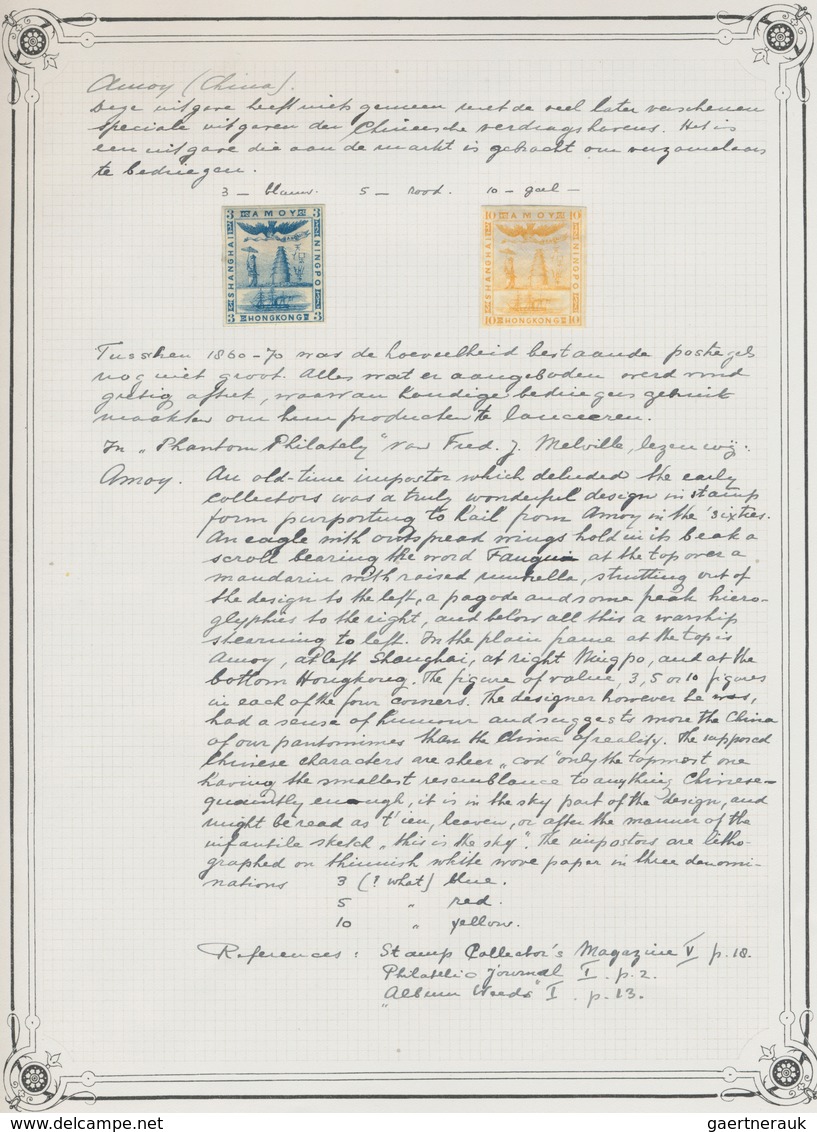 Amoy (China).
Deze uitgave heeft niets gemeen met de veel later verschenen
speciale uitgaven der Chineesche verdragshavens. Het is
een uitgave die aan de markt is gebracht om verzamelaars
te bedriegen.
3 — blauw. 5 — rood. 10 — geel —
3 AMOY 3
SHANGHAI
NINGPO
3 HONGKONG 3
10 AMOY 10
SHANGHAI
NINGPO
10 HONGKONG 10
Tusschen 1860-70 was de hoeveelheid bestaande postzegels
nog niet groot. Alles wat er aangeboden werd vond
gretig aftrek, waarvan kundige bedriegers gebruik
maakten om hun producten te lanceeren.
In „Phantom Philately" van Fred. J. Melville, lezen wij:
Amoy. An old-time impostor which deluded the early
collectors was a truly wonderful design in stamp
form purporting to hail from Amoy in the 'sixties.
An eagle with outspread wings hold in its beak a
scroll bearing the word Fanguin at the top over a
mandarin with raised umbrella, strutting out of
the design to the left, a pagode and some freak hiero-
glyphics to the right, and below all this a warship
steaming to left. In the plain frame at the top is
Amoy, at left Shanghai, at right Ningpo, and at the
bottom Hongkong. The figure of value, 3, 5 or 10 figures
in each of the four corners. The designer however he was,
had a sense of humour and suggests more the China
of our pantomimes than the China of reality. The supposed
Chinese characters are sheer „cod" only the topmost one
having the smallest resemblance to anything Chinese-
quaintly enough, it is in the sky part of the design, and
might be read as t'ien, heaven, or after the manner of the
infantile sketch „this is the sky". The impostors are litho-
graphed on thinnish white wove paper in three denomi-
nations 3 (? what) blue.
5 „ red.
10 „ yellow.
References: Stamp Collector's Magazine V p. 18.
Philatelic Journal I. p. 2.
„Album Weeds" I. p. 13.
gaertnerauk